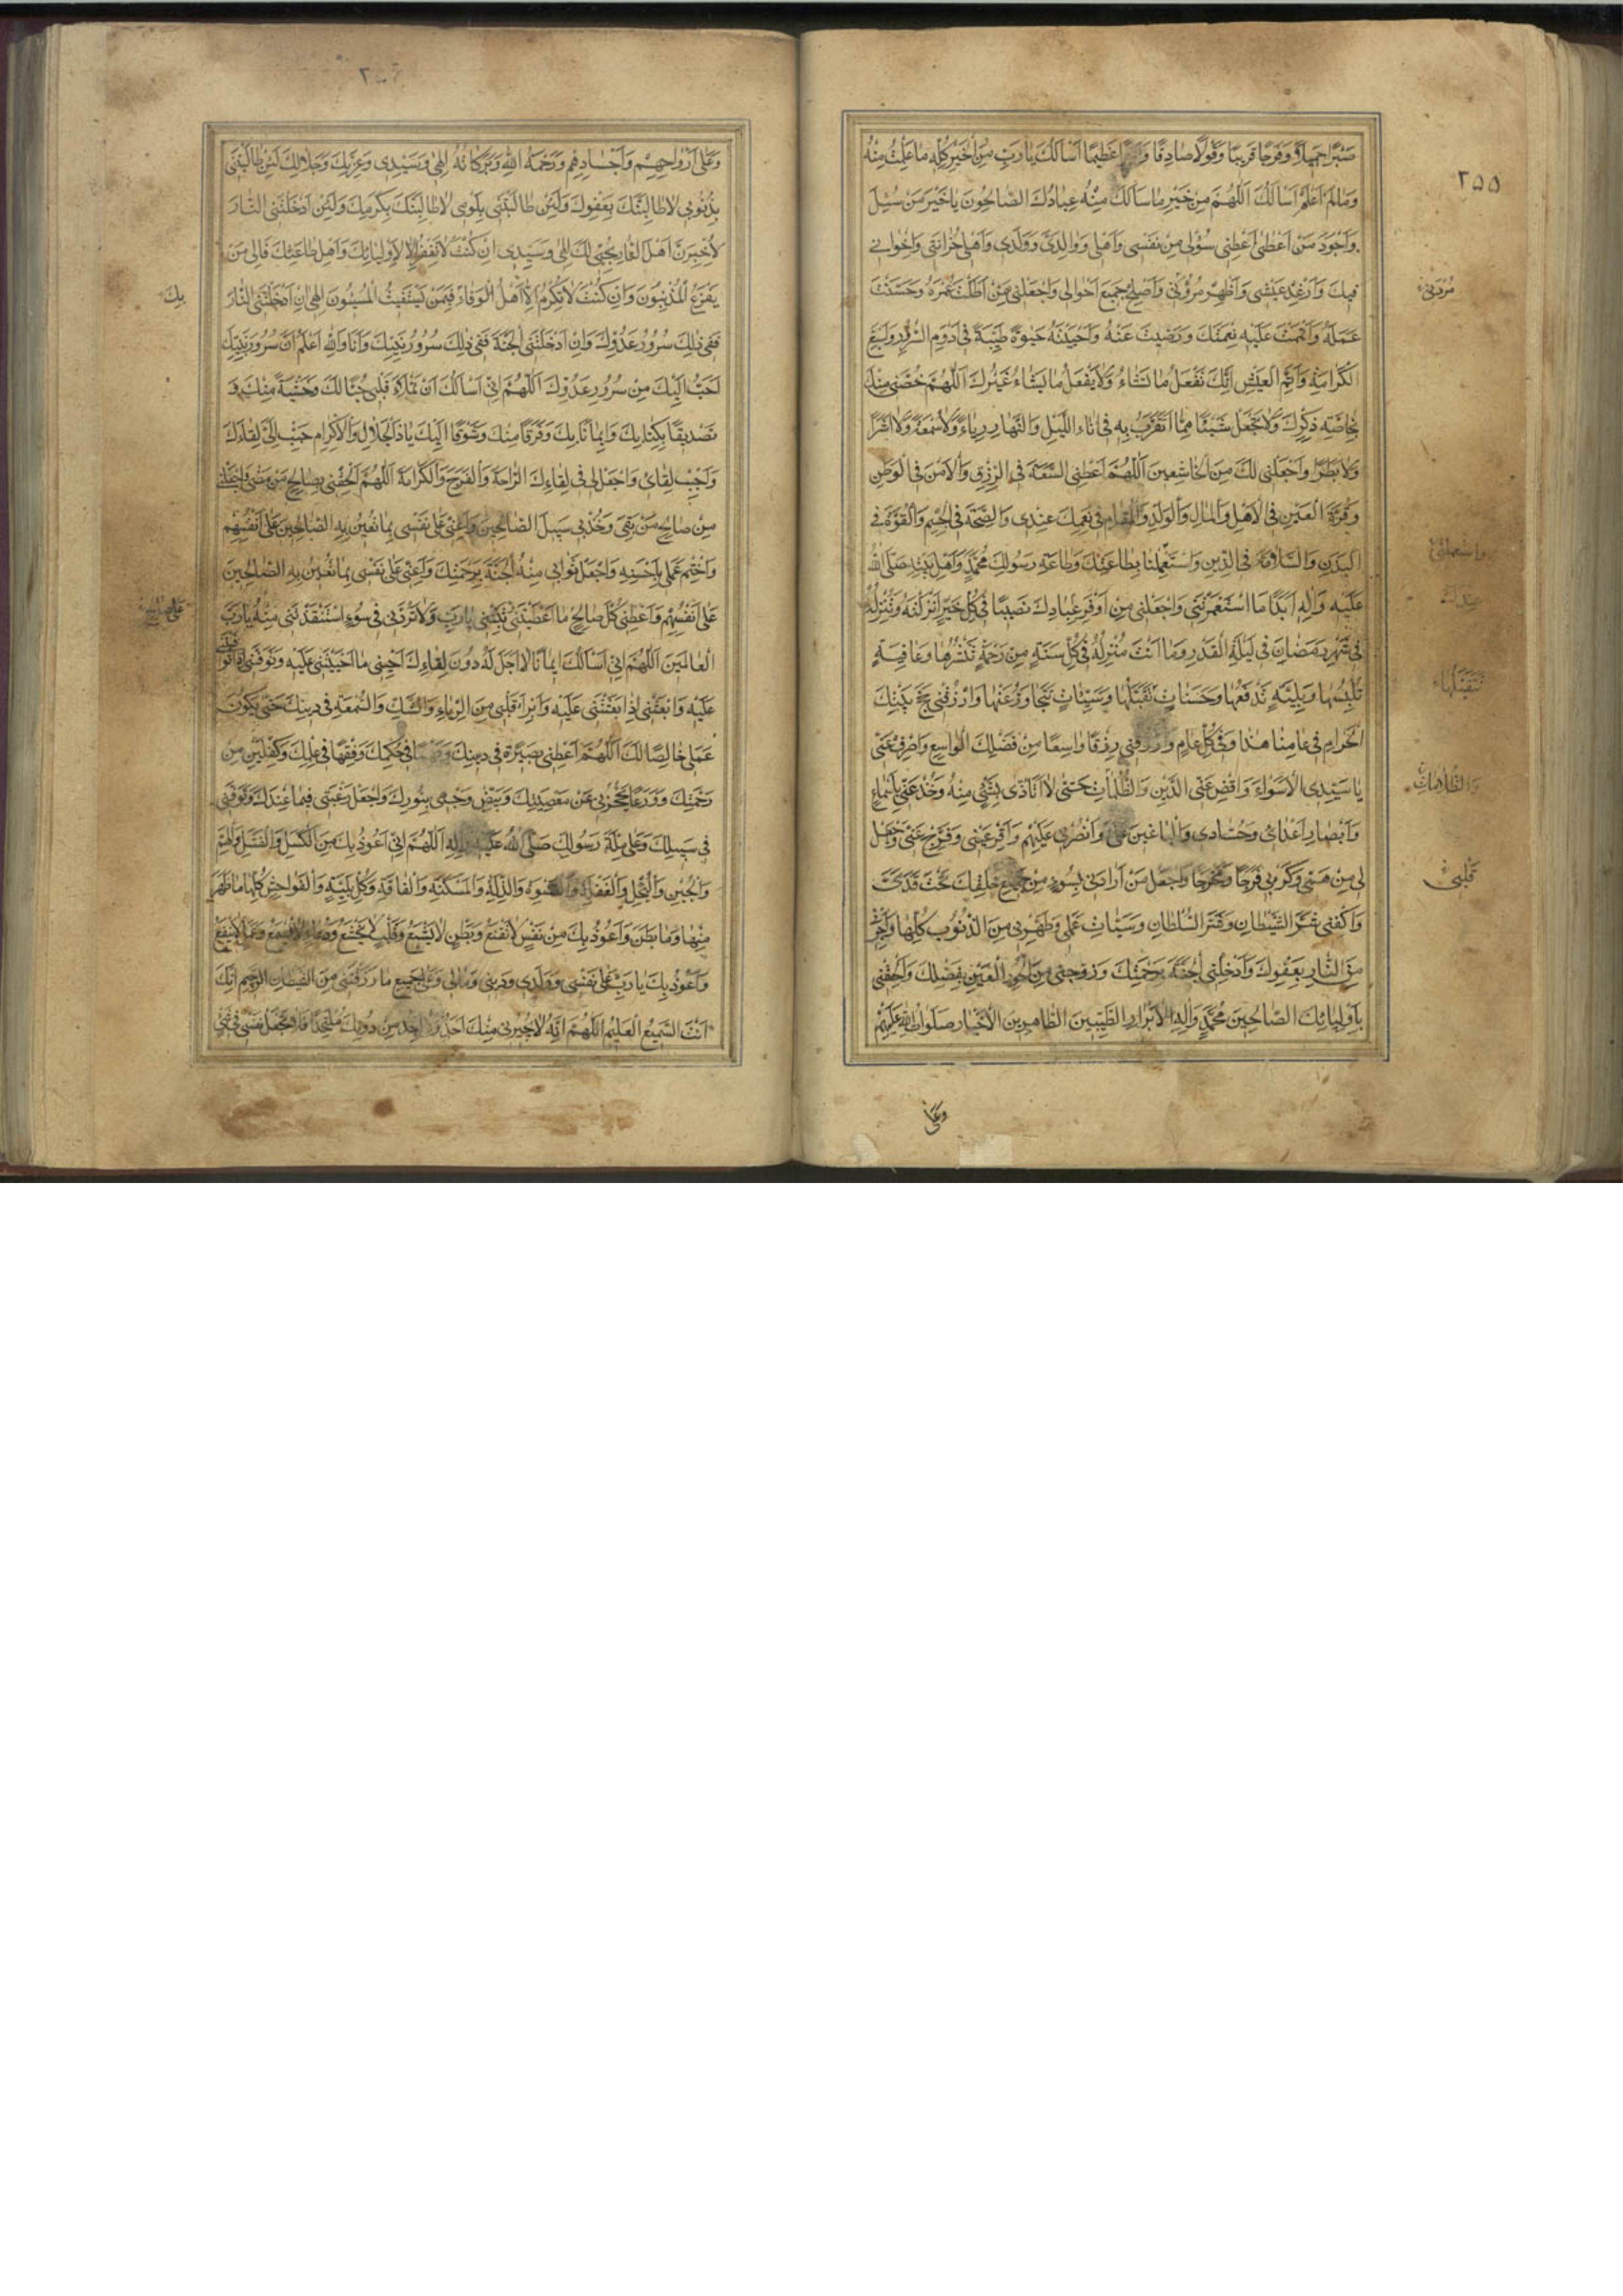 ٢٥٥
صَبْرًا جَمِيلًا وَفَرَجًا قَرِيبًا وَقَوْلًا صَادِقًا وَ عَظِيمًا اَسْاَلُكَ يَا رَبِّ مِنَ الْخَيْرِ كُلِّهِ مَا عَلِمْتُ مِنْهُ
وَمَا لَمْ اَعْلَمْ اَسْاَلُكَ اَللّٰهُمَّ مِنْ خَيْرِ مَا سَاَلَكَ مِنْهُ عِبَادُكَ الصَّالِحُونَ يَا خَيْرَ مَنْ سُئِلَ
وَاَجْوَدَ مَنْ اَعْطٰى اَعْطِنِى سُؤْلِى مِنْ نَفْسِى وَاَهْلِى وَوَالِدَىَّ وَوَلَدِى وَاَهْلِ حُزَانَتِى وَاِخْوَانِى
فِيكَ وَاَرْغِدْ عَيْشِى وَاَظْهِرْ مُرُوَّتِى وَاَصْلِحْ جَمِيعَ اَحْوَالِى وَاجْعَلْنِى مِمَّنْ اَطَلْتَ عُمْرَهُ وَحَسَّنْتَ
عَمَلَهُ وَاَتْمَمْتَ عَلَيْهِ نِعْمَتَكَ وَرَضِيتَ عَنْهُ وَاَحْيَيْتَهُ حَيٰوةً طَيِّبَةً فِى اَدْوَمِ السُّرُورِ وَاَسْبَغِ
الْكَرَامَةِ وَاَتَمِّ الْعَيْشِ اِنَّكَ تَفْعَلُ مَا تَشَاءُ وَلَا يَفْعَلُ مَا يَشَاءُ غَيْرُكَ اَللّٰهُمَّ خُصَّنِى مِنْكَ
بِخَاصَّةِ ذِكْرِكَ وَلَا تَجْعَلْ شَيْئًا مِمَّا اَتَقَرَّبُ بِهِ فِى اٰنَاءِ اللَّيْلِ وَالنَّهَارِ رِيَاءً وَلَا سُمْعَةً وَلَا اَشَرًا
وَلَا بَطَرًا وَاجْعَلْنِى لَكَ مِنَ الْخَاشِعِينَ اَللّٰهُمَّ اَعْطِنِى السَّعَةَ فِى الرِّزْقِ وَالْاَمْنَ فِى الْوَطَنِ
وَقُرَّةَ الْعَيْنِ فِى الْاَهْلِ وَالْمَالِ وَالْوَلَدِ وَالْمُقَامَ فِى نِعَمِكَ عِنْدِى وَالصِّحَّةَ فِى الْجِسْمِ وَالْقُوَّةَ فِى
الْبَدَنِ وَالسَّلَامَةَ فِى الدِّينِ وَاسْتَعْمِلْنَا بِطَاعَتِكَ وَطَاعَةِ رَسُولِكَ مُحَمَّدٍ وَاَهْلِ بَيْتِهِ صَلَّى اللهُ
عَلَيْهِ وَاٰلِهِ اَبَدًا مَا اسْتَعْمَرْتَنِى وَاجْعَلْنِى مِنْ اَوْفَرِ عِبَادِكَ نَصِيبًا فِى كُلِّ خَيْرٍ اَنْزَلْتَهُ وَتُنْزِلُهُ
فِى شَهْرِ رَمَضَانَ فِى لَيْلَةِ الْقَدْرِ وَمَا اَنْتَ مُنْزِلُهُ فِى كُلِّ سَنَةٍ مِنْ رَحْمَةٍ تَنْشُرُهَا وَعَافِيَةٍ
تُلْبِسُهَا وَبَلِيَّةٍ تَدْفَعُهَا وَحَسَنَاتٍ تَقَبَّلُهَا وَسَيِّئَاتٍ تَتَجَاوَزُ عَنْهَا وَارْزُقْنِى حَجَّ بَيْتِكَ
الْحَرَامِ فِى عَامِنَا هٰذَا وَفِى كُلِّ عَامٍ وَارْزُقْنِى رِزْقًا وَاسِعًا مِنْ فَضْلِكَ الْوَاسِعِ وَاصْرِفْ عَنِّى
يَا سَيِّدِى الْاَسْوَاءَ وَاقْضِ عَنِّى الدَّيْنَ وَالظُّلُمَاتِ حَتّٰى لَا اَتَاَذّٰى بِشَىْءٍ مِنْهُ وَخُذْ عَنِّى بِاَسْمَاعِ
وَاَبْصَارِ اَعْدَائِى وَحُسَّادِى وَالْبَاغِينَ عَلَىَّ وَانْصُرْنِى عَلَيْهِمْ وَاَقِرَّ عَيْنِى وَفَرِّجْ عَنِّى وَاجْعَلْ
لِى مِنْ هَمِّى وَكَرْبِى فَرَجًا وَمَخْرَجًا وَاجْعَلْ مَنْ اَرَادَنِى بِسُوءٍ مِنْ جَمِيعِ خَلْقِكَ تَحْتَ قَدَمَىَّ
وَاكْفِنِى شَرَّ الشَّيْطَانِ وَشَرَّ السُّلْطَانِ وَسَيِّئَاتِ عَمَلِى وَطَهِّرْنِى مِنَ الذُّنُوبِ كُلِّهَا وَاَجِرْنِى
مِنَ النَّارِ بِعَفْوِكَ وَاَدْخِلْنِى الْجَنَّةَ بِرَحْمَتِكَ وَزَوِّجْنِى مِنَ الْحُورِ الْعِينِ بِفَضْلِكَ وَاَلْحِقْنِى
بِاَوْلِيَائِكَ الصَّالِحِينَ مُحَمَّدٍ وَاٰلِهِ الْاَبْرَارِ الطَّيِّبِينَ الطَّاهِرِينَ الْاَخْيَارِ صَلَوَاتُ اللهِ عَلَيْهِمْ
وَعَلٰى
وَاسْتَعْمِلْنِى
وَالظُّلَامَاتِ
قَلْبِى
وَعَلٰى اَرْوَاحِهِمْ وَاَجْسَادِهِمْ وَرَحْمَةُ اللهِ وَبَرَكَاتُهُ اِلٰهِى وَسَيِّدِى وَعِزَّتِكَ وَجَلَالِكَ لَئِنْ طَالَبْتَنِى
بِذُنُوبِى لَاُطَالِبَنَّكَ بِعَفْوِكَ وَلَئِنْ طَالَبْتَنِى بِلُؤْمِى لَاُطَالِبَنَّكَ بِكَرَمِكَ وَلَئِنْ اَدْخَلْتَنِى النَّارَ
لَاُخْبِرَنَّ اَهْلَ النَّارِ بِحُبِّى لَكَ اِلٰهِى وَسَيِّدِى اِنْ كُنْتَ لَا تَغْفِرُ اِلَّا لِاَوْلِيَائِكَ وَاَهْلِ طَاعَتِكَ فَاِلٰى مَنْ
يَفْزَعُ الْمُذْنِبُونَ وَاِنْ كُنْتَ لَا تُكْرِمُ اِلَّا اَهْلَ الْوَفَاءِ فَبِمَنْ يَسْتَغِيثُ الْمُسِيئُونَ اِلٰهِى اِنْ اَدْخَلْتَنِى النَّارَ
فَفِى ذٰلِكَ سُرُورُ عَدُوِّكَ وَاِنْ اَدْخَلْتَنِى الْجَنَّةَ فَفِى ذٰلِكَ سُرُورُ نَبِيِّكَ وَاَنَا وَاللهِ اَعْلَمُ اَنَّ سُرُورَ نَبِيِّكَ
اَحَبُّ اِلَيْكَ مِنْ سُرُورِ عَدُوِّكَ اَللّٰهُمَّ اِنِّى اَسْاَلُكَ اَنْ تَمْلَاَ قَلْبِى حُبًّا لَكَ وَخَشْيَةً مِنْكَ وَ
تَصْدِيقًا بِكِتَابِكَ وَاِيمَانًا بِكَ وَفَرَقًا مِنْكَ وَشَوْقًا اِلَيْكَ يَا ذَا الْجَلَالِ وَالْاِكْرَامِ حَبِّبْ اِلَىَّ لِقَاءَكَ
وَاَحْبِبْ لِقَائِى وَاجْعَلْ لِى فِى لِقَائِكَ الرَّاحَةَ وَالْفَرَجَ وَالْكَرَامَةَ اَللّٰهُمَّ اَلْحِقْنِى بِصَالِحِ مَنْ مَضٰى وَاجْعَلْنِى
مِنْ صَالِحِ مَنْ بَقِىَ وَخُذْ بِى سَبِيلَ الصَّالِحِينَ وَاَعِنِّى عَلٰى نَفْسِى بِمَا تُعِينُ بِهِ الصَّالِحِينَ عَلٰى اَنْفُسِهِمْ
وَاخْتِمْ عَمَلِى بِاَحْسَنِهِ وَاجْعَلْ ثَوَابِى مِنْهُ الْجَنَّةَ بِرَحْمَتِكَ وَاَعِنِّى عَلٰى نَفْسِى بِمَا تُعِينُ بِهِ الصَّالِحِينَ
عَلٰى اَنْفُسِهِمْ وَاَعْطِنِى كُلَّ صَالِحِ مَا اَعْطَيْتَنِى ثَبِّتْنِى يَا رَبِّ وَلَا تَرُدَّنِى فِى سُوءٍ اسْتَنْقَذْتَنِى مِنْهُ يَا رَبَّ
الْعَالَمِينَ اَللّٰهُمَّ اِنِّى اَسْاَلُكَ اِيمَانًا لَا اَجَلَ لَهُ دُونَ لِقَائِكَ اَحْيِنِى مَا اَحْيَيْتَنِى عَلَيْهِ وَتَوَفَّنِى اِذَا تَوَفَّيْتَنِى
عَلَيْهِ وَابْعَثْنِى اِذَا بَعَثْتَنِى عَلَيْهِ وَاَبْرِءْ قَلْبِى مِنَ الرِّيَاءِ وَالشَّكِّ وَالسُّمْعَةِ فِى دِينِكَ حَتّٰى يَكُونَ
عَمَلِى خَالِصًا لَكَ اَللّٰهُمَّ اَعْطِنِى بَصِيرَةً فِى دِينِكَ وَفَهْمًا فِى حُكْمِكَ وَفِقْهًا فِى عِلْمِكَ وَكِفْلَيْنِ مِنْ
رَحْمَتِكَ وَوَرَعًا يَحْجُزُنِى عَنْ مَعْصِيَتِكَ وَبَيِّضْ وَجْهِى بِنُورِكَ وَاجْعَلْ رَغْبَتِى فِيمَا عِنْدَكَ وَتَوَفَّنِى
فِى سَبِيلِكَ وَعَلٰى مِلَّةِ رَسُولِكَ صَلَّى اللهُ عَلَيْهِ وَاٰلِهِ اَللّٰهُمَّ اِنِّى اَعُوذُ بِكَ مِنَ الْكَسَلِ وَالْفَشَلِ وَالْهَمِّ
وَالْجُبْنِ وَالْبُخْلِ وَالْغَفْلَةِ وَالْقَسْوَةِ وَالذِّلَّةِ وَالْمَسْكَنَةِ وَالْفَاقَةِ وَكُلِّ بَلِيَّةٍ وَالْفَوَاحِشِ كُلِّهَا مَا ظَهَرَ
مِنْهَا وَمَا بَطَنَ وَاَعُوذُ بِكَ مِنْ نَفْسٍ لَا تَقْنَعُ وَبَطْنٍ لَا يَشْبَعُ وَقَلْبٍ لَا يَخْشَعُ وَدُعَاءٍ لَا يُسْمَعُ وَعَمَلٍ لَا يَنْفَعُ
وَاَعُوذُ بِكَ يَا رَبِّ عَلٰى نَفْسِى وَوَلَدِى وَدِينِى وَمَالِى وَعَلٰى جَمِيعِ مَا رَزَقْتَنِى مِنَ الشَّيْطَانِ الرَّجِيمِ اِنَّكَ
اَنْتَ السَّمِيعُ الْعَلِيمُ اَللّٰهُمَّ اِنَّهُ لَا يُجِيرُنِى مِنْكَ اَحَدٌ وَلَا اَجِدُ مِنْ دُونِكَ مُلْتَحَدًا فَلَا تَجْعَلْ نَفْسِى فِى شَىْءٍ
بِكَ